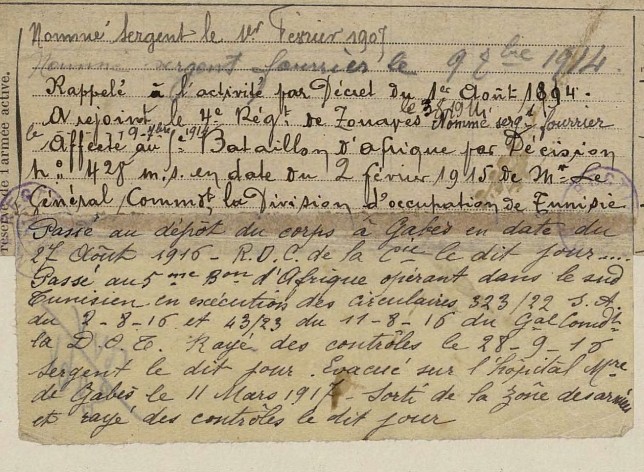 Nommé Sergent le 1er Février 1907
Nommé sergent fourrier le 9 8bre 1914.
Rappelé à l'activité par Décret du 1er Août 1894.
le 3 8 1914
A rejoint le 4e Régt de Zouaves Nommé sergt fourrier
le 19-7bre 1914
Affecté au 1e Bataillon d'afrique par Décision
n° 428 m.s. en date du 2 février 1915 de Mr Le
Général Commdt la Division d'occupation de Tunisie.
Passé au dépôt du corps à Gabès en date du
27 Août 1916 - R.D.C. de la Cie le dit jour....
Passé au 5me Bon d'Afrique opérant dans le sud
Tunisien en exécution des circulaires 323/22 S.A.
du 2-8-16 et 43/23 du 11-8-16 du Gal Comdt
la D.O.T. Rayé des contrôles le 28-9-16
Sergent le dit jour. Evacué sur l'hôpital Mre
de Gabès le 11 Mars 1917 - Sorti de la zône des armées
et rayé des contrôles le dit jour
réserve de l'armée active.